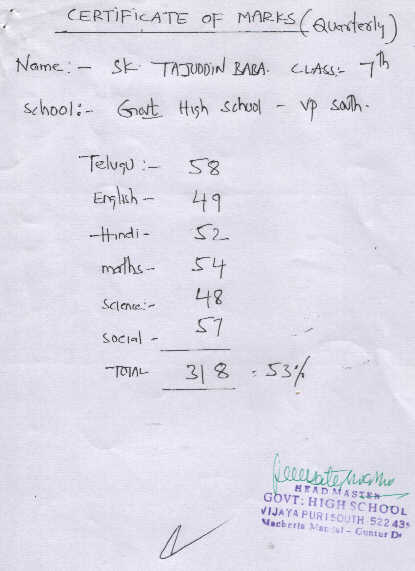 CERTIFICATE OF MARKS (Quarterly)
Name:- SK. TAJUDDIN BABA. CLASS:- 7th
School:- Govt High School - VP South.
Telugu :- 58
English - 49
-Hindi - 52
maths - 54
Science:- 48
Social - 57
TOTAL 318 = 53%
HEAD MASTER
GOVT: HIGH SCHOOL
VIJAYA PURI SOUTH-522 439
Macherla Mandal - Guntur Dt